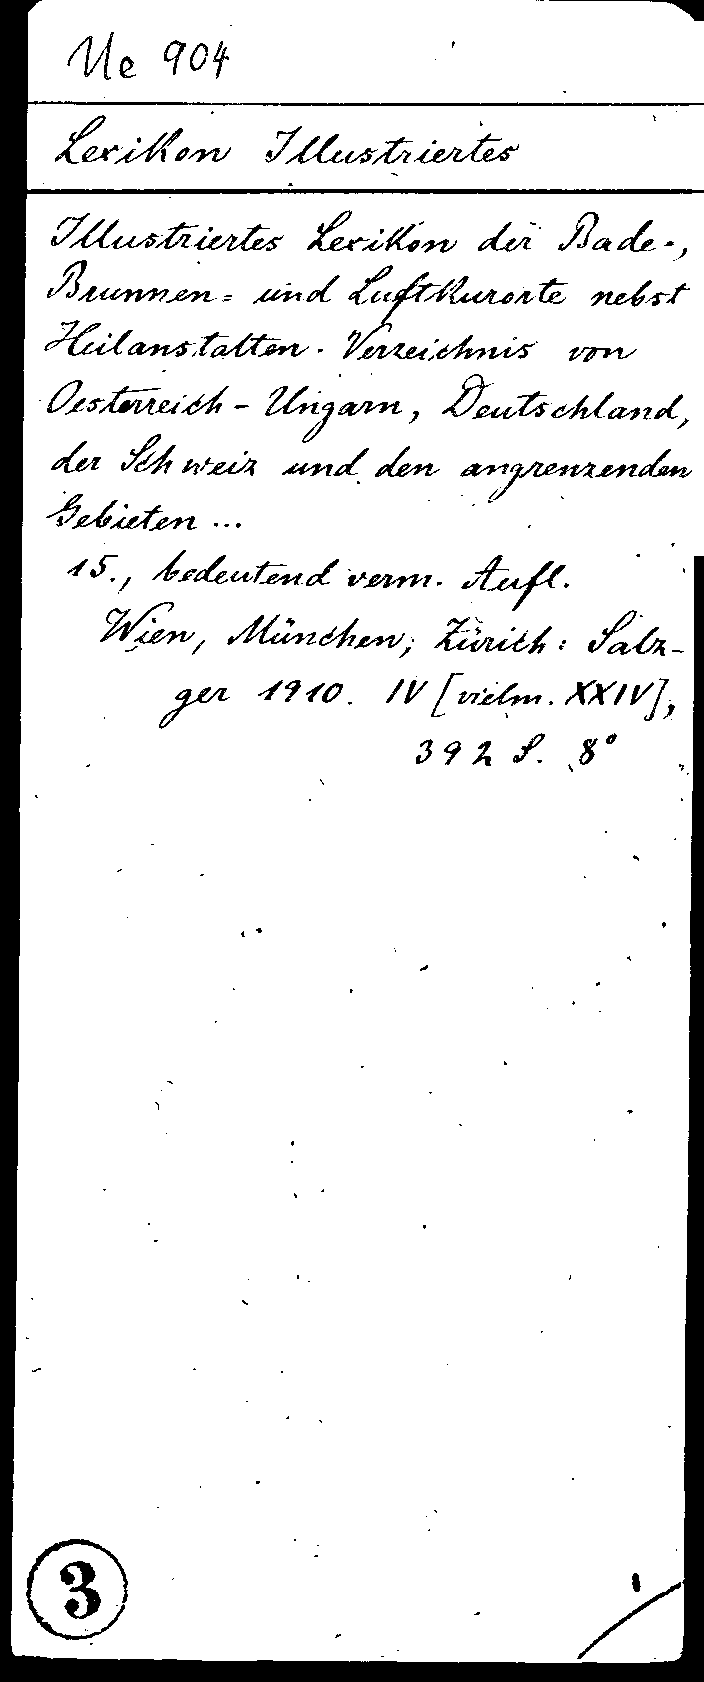 Ue 904
Lexikon Illustriertes
Illustriertes Lexikon der Bade-,
Brunnen- und Luftkurorte nebst
Heilanstalten-Verzeichnis von
Oesterreich-Ungarn, Deutschland,
der Schweiz und den angrenzenden
Gebieten ...
15., bedeutend verm. Aufl.
Wien, München, Zürich: Salz-
ger 1910. IV [vielm. XXIV],
392 S. 8°
3